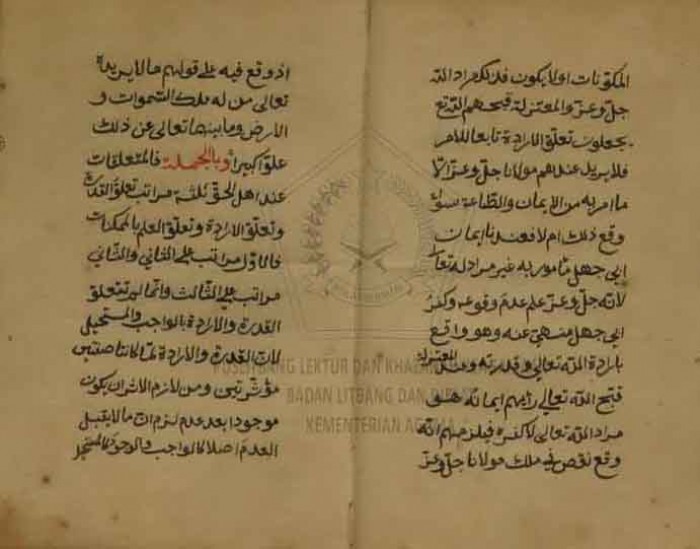 المكونات اولا يكون فذلك مراد الله
جل وعز والمعتزلة قبحهم الله تع
يجعلون تعلق الارادة تابعا للامر
فلا يريد عندهم مولانا جل وعز الا
ما امر به من الايمان والطاعة سواء
وقع ذلك ام لا فعندنا ايمان
ابي جهل مامور به غير مراد له تعالى
لانه جل وعز علم عدم وقوعه وكفر
ابي جهل منهي عنه وهو واقع
بارادة الله تعالى وقدرته وعند المعتزلة
قبح الله تعالى رايهم ايمانه هو
مراد الله تعالى لا كفره فيلزمهم انه
وقع نقص في ملك مولانا جل وعز
اذ وقع فيه على قولهم ما لا يريده
تعالى من له ملك السموات و
الارض وما بينهما تعالى عن ذلك
علوا كبيرا وبالجملة فالمتعلقات
عند اهل الحق ثلثة مراتب تعلق القدرة
وتعلق الارادة وتعلق العلم بالممكنات
فالاول مراتب على الثاني والثاني
مراتب على الثالث وانما لم تتعلق
القدرة والارادة بالواجب والمستحيل
لان القدرة والارادة لما كانتا صفتين
مؤثرتين ومن لازم الاثر ان يكون
موجودا بعد عدم لزم ان ما لا يقبل
العدم اصلا كالواجب
PUSLITBANG LEKTUR DAN KHAZANAH
BADAN LITBANG DAN DIKLAT
KEMENTERIAN AGAMA